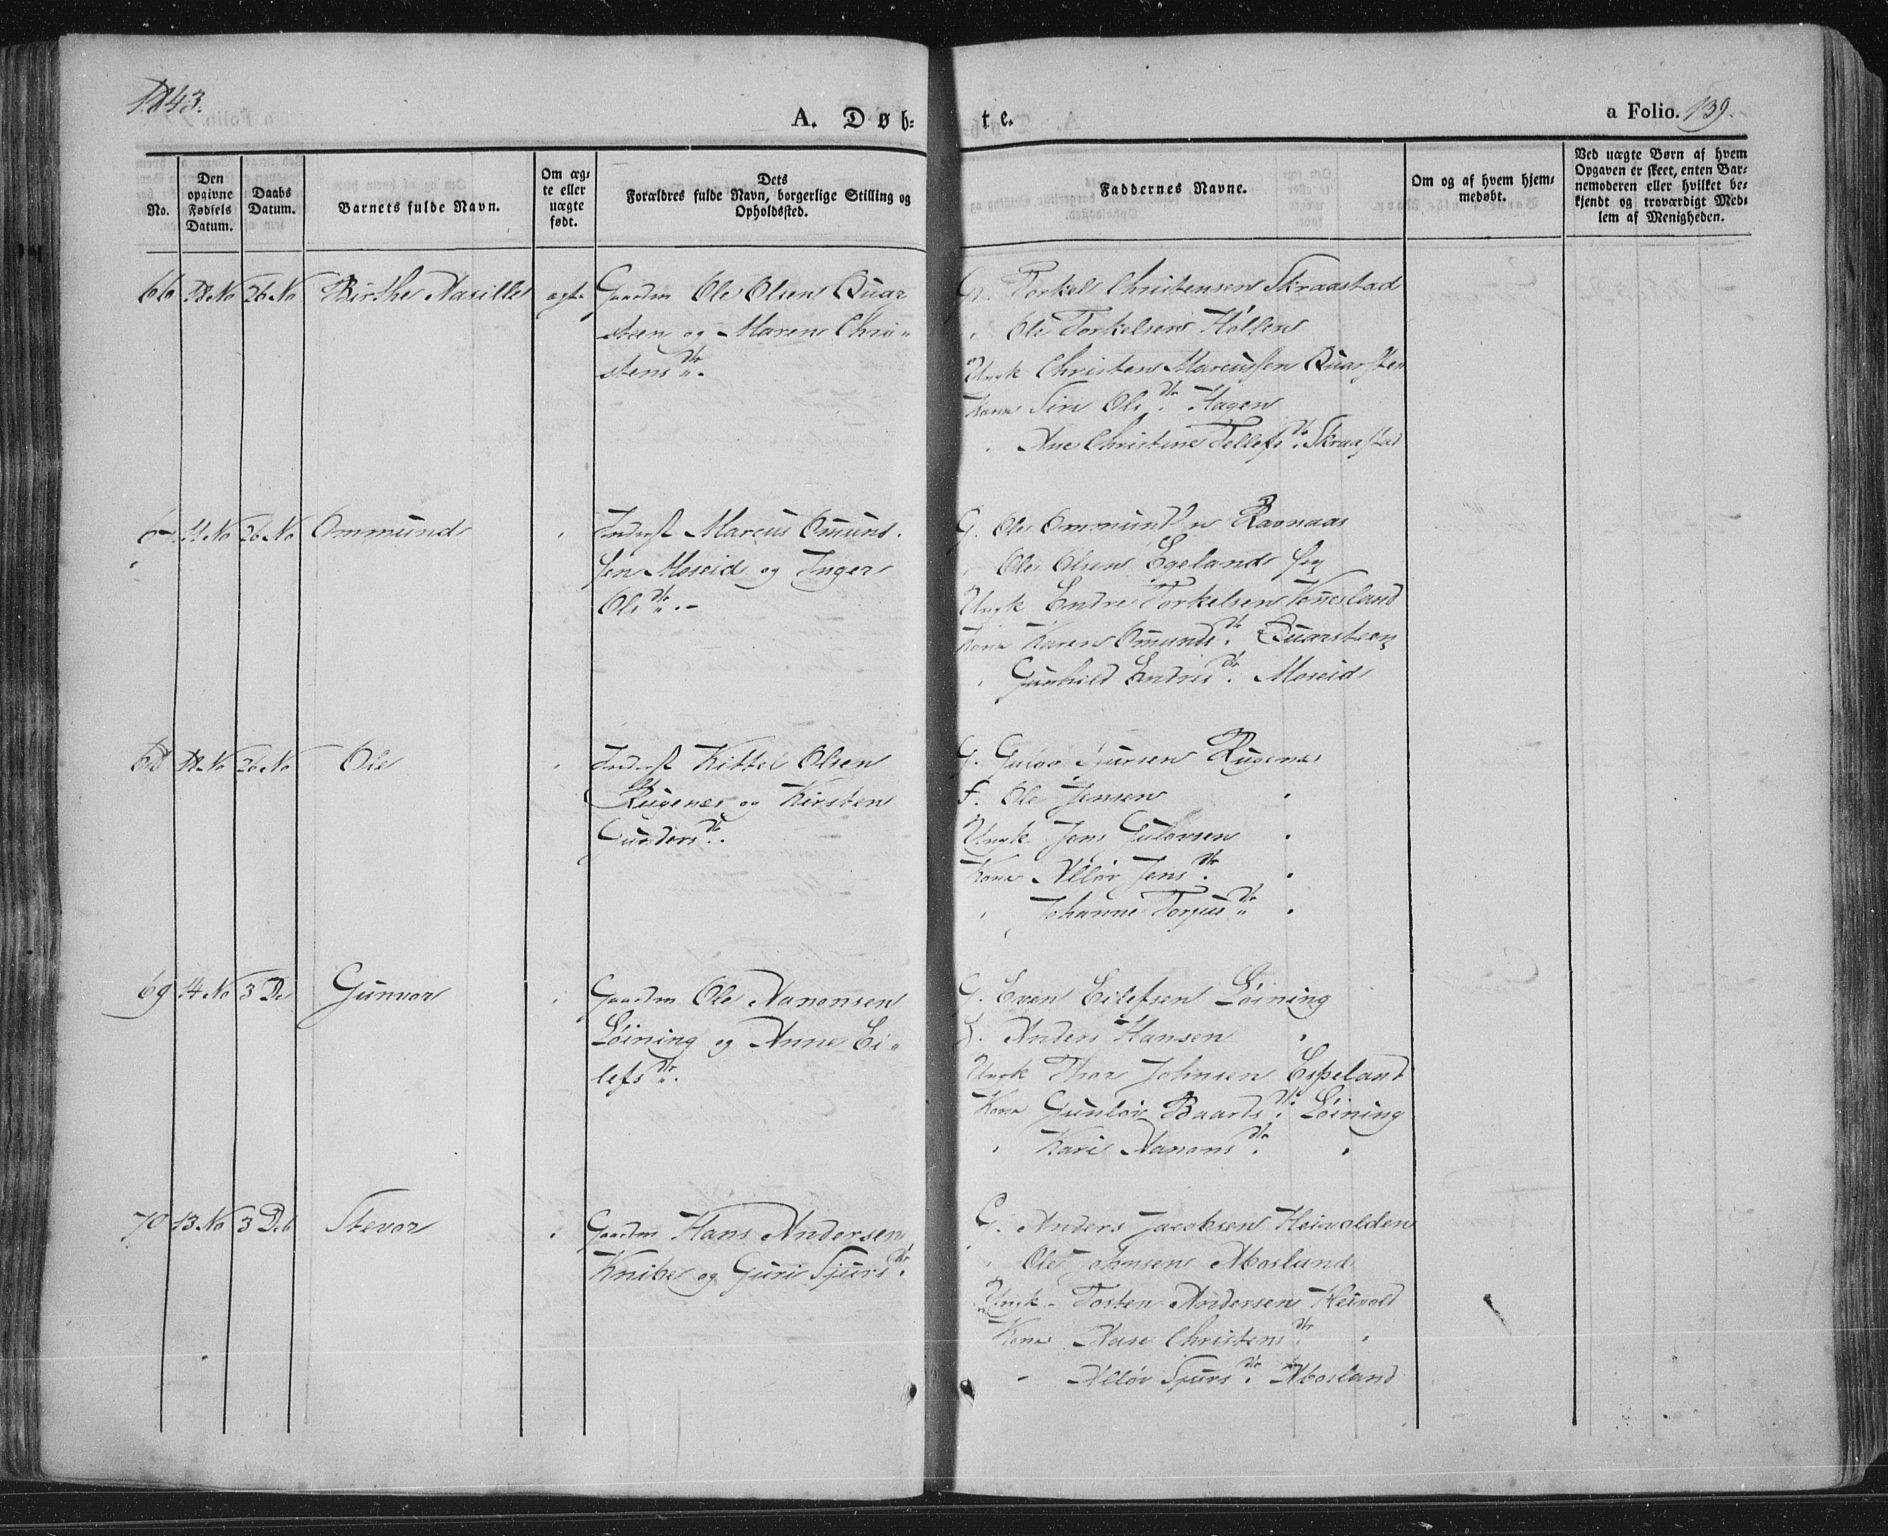 1843.
A. Døb=
te.
a Folio. 139.
No.
Den opgivne Fødsels Datum.
Daabs Datum.
Barnets fulde Navn.
Om æg-
te eller
uægte
født.
Dets
Forældres fulde Navn, borgerlige Stilling og
Opholdssted.
Faddernes Navne.
Om og af hvem hjem=
medøbt.
Ved uægte Børn af hvem
Opgaven er skeet, enten Bar-
nemoderen eller hvilket be-
kjendt og troværdigt Med-
lem af Menigheden.
66 No 26 No Birthe Nasille ægt. Gaardm Ole Olsen Quar
steen og Maren Chri
stensdtr.
G. Torkel Christensen Skraastad
Ole Torkelsen
Ungk Christen Marcussen Quarsten
Kone Siri Olsdtr. Hagen
Ane Christine Tellefsdtr. Skraastad
67 11 No 26 No Ommund Inderst Marcus Omuns.
sen Moseid og Inger
Olsdtr.
G. Ole Ommunds Ravnaas
Ole Olsen Egeland
Ungk Endre Torkelsen
Kone Karen Omundsdtr. Quarsteen
Gunhild Endresdtr. Moseid
68 No 26 No Ole Inderst Kittel Olsen
Rugenes og Kirsten
Gundersdtr.
G. Gulov Sjursen Rugenes
F. Ole Jensen
Ungk Jens Gulovsen
Kone Alløv Jensdtr.
Johanne Torjusdtr.
69 14 No 3 De Gunvor Gaardm Ole Aanonsen
Løining og Anne Ei-
lefsdtr.
G. Even Eilefsen Løining
Anders Hansen
Ungk Thor Johnsen Espeland
Kone Gunløv Baardsdtr. Løining
Kari Aanonsdtr.
70 13 No 3 Deb Stevor Gaardm Hans Andersen
Knibe og Guri Sjursdtr.
G. Anders Jacobsen Heivolden
Ole Johnsen Mosland
Ungk Tosten Andersen Heivold
Kone Aase Christensdtr
Alløv Sjursdtr. Mosland